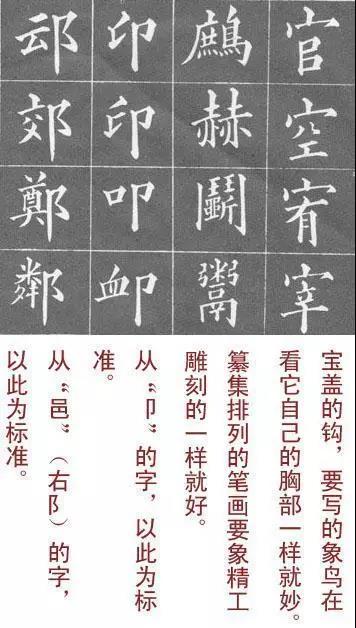 官空宥宰
鷓赫鬭鬻
印印叩卹
䢵郊鄭鄰
宝盖的钩，要写的象鸟在
看它自己的胸部一样就妙。
纂集排列的笔画要象精工
雕刻的一样就好。
从“卩”的字，以此为标
准。
从“邑”（右阝）的字，
以此为标准。